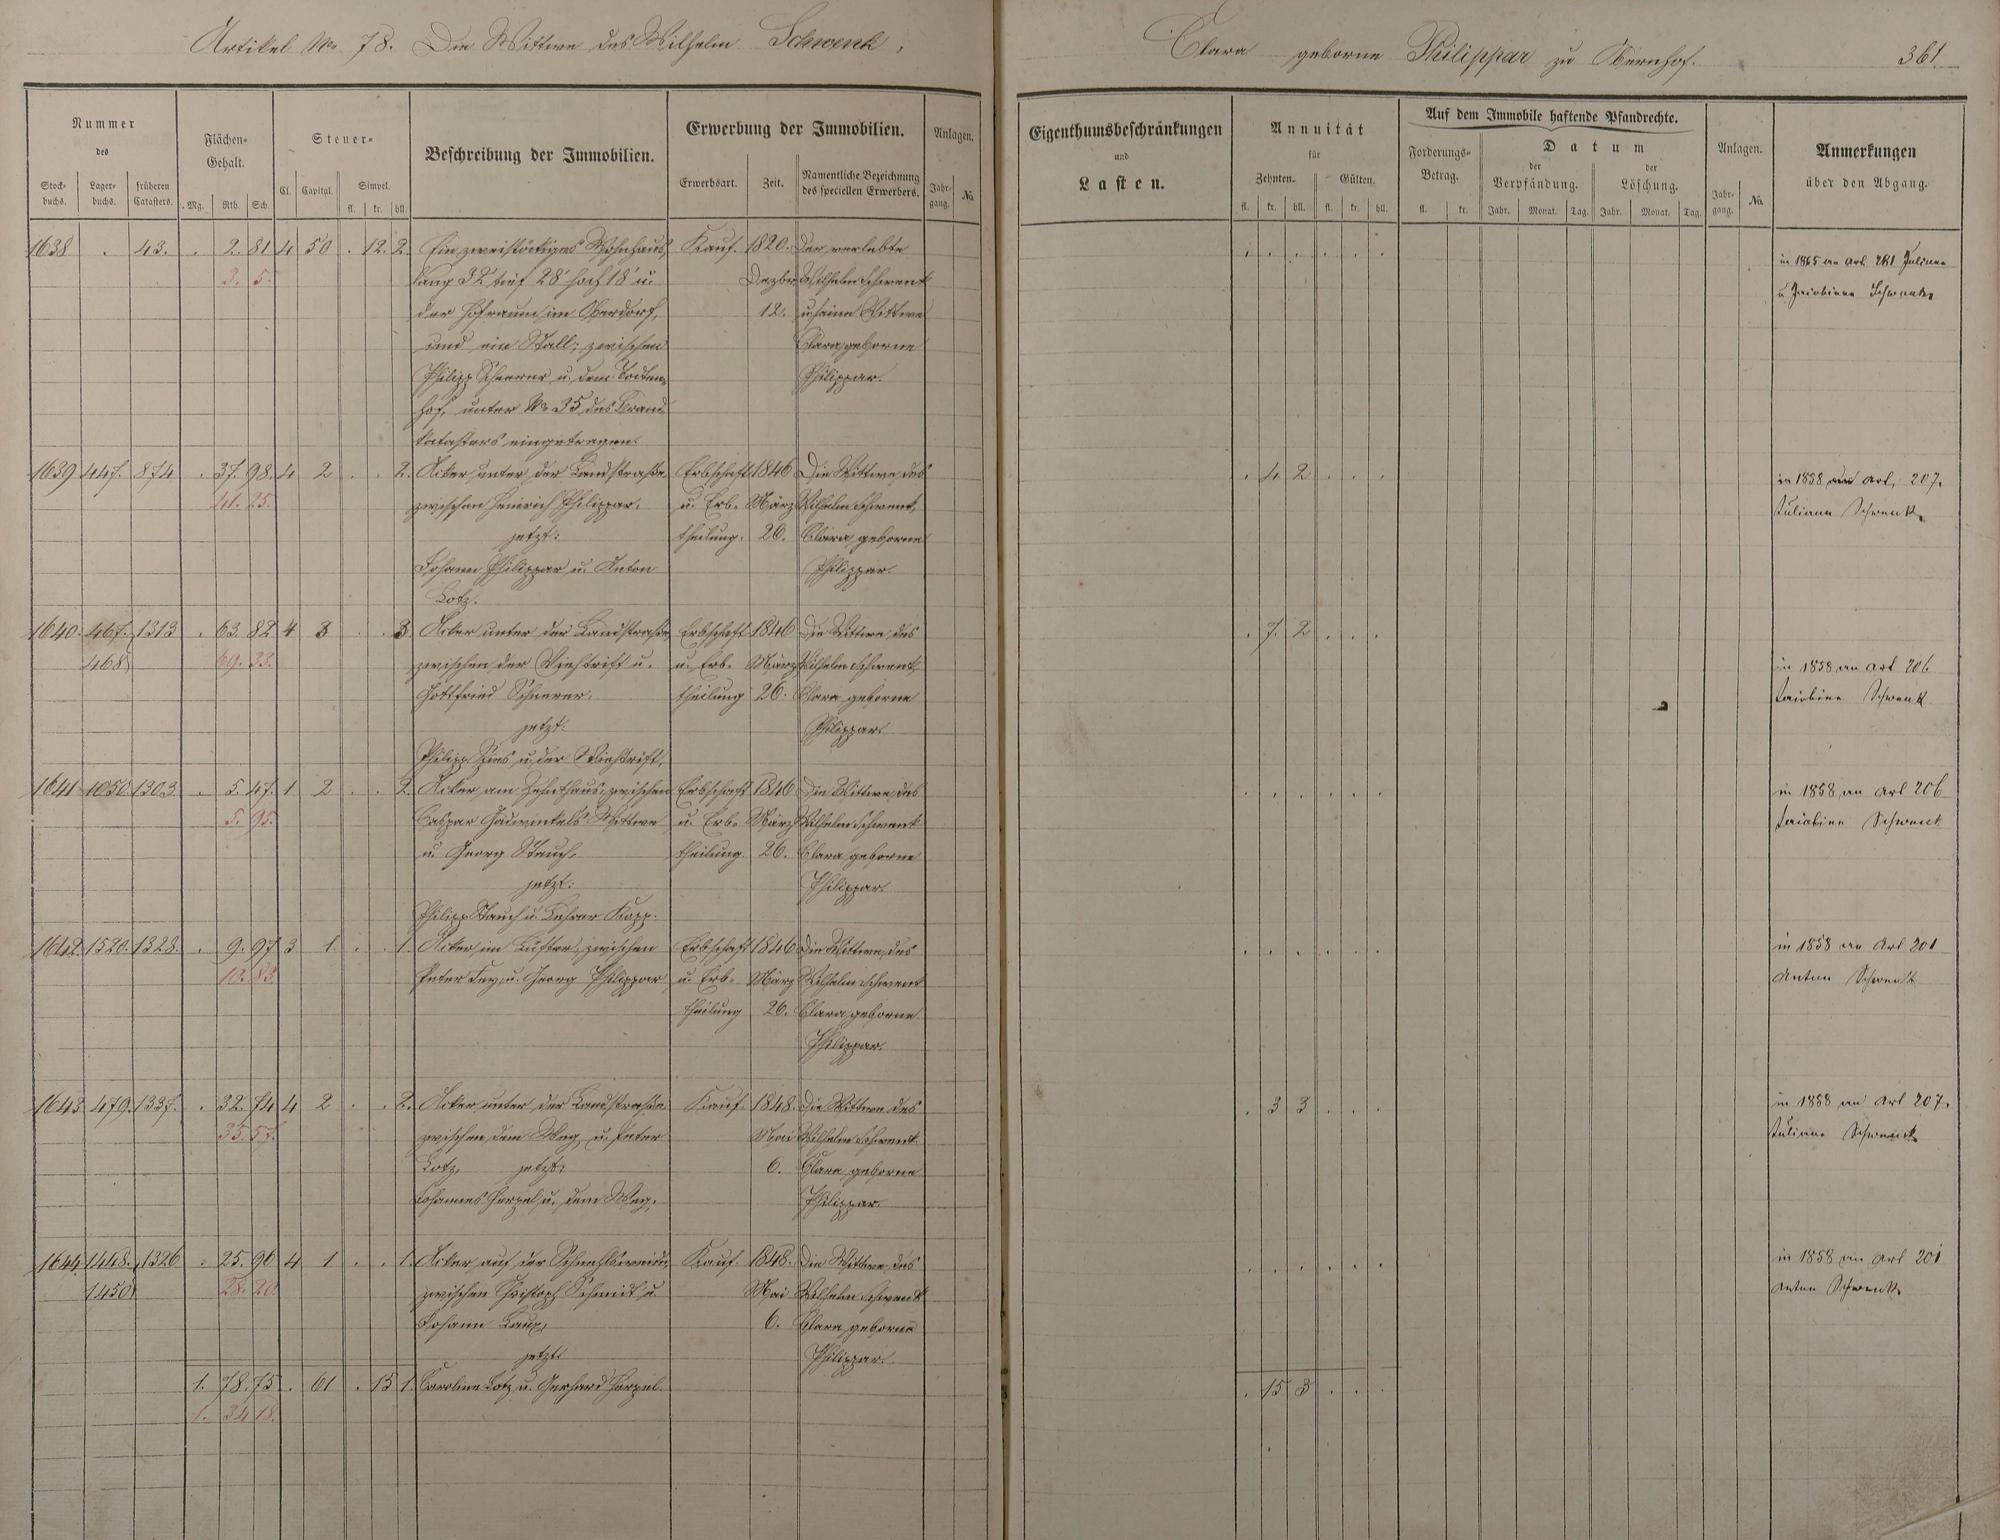 Artikel No 78. Die Wittwe des Wilhelm Schwenk,
Clara geborne Philippar zu Obernhof.
361
Nummer
des
Stock-
buchs.
Lager-
buchs.
früheren
Catasters.
Flächen-
Gehalt.
Mg. Rth. Sch.
Steuer-
Cl. Capital. Simpel.
fl. kr. hll.
Beschreibung der Immobilien.
Erwerbung der Immobilien.
Erwerbsart. Zeit.
Namentliche Bezeichnung
des speciellen Erwerbers.
Anlagen.
Jahr-
gang. No.
Eigenthumsbeschränkungen
und
Lasten.
Annuität
für
Zehnten. Gülten.
fl. kr. hll. fl. kr. hll.
Auf dem Immobile haftende Pfandrechte.
Forderungs-
Betrag.
fl. kr.
Datum
der
Verpfändung.
der
Löschung.
Jahr. Monat. Tag. Jahr. Monat. Tag.
Anlagen.
Jahr-
gang. No.
Anmerkungen
über den Abgang.
1638 . 43. . 2. 81 4 50 . 12. 2. Ein zweistöckiges Wohnhaus, Kauf. 1820. Der verlebte
3. 5. lang 32' tief 28' hoch 18' u. Dezbr. Wilhelm Schwenk
der Hofraum im Oberdorf, 12. u. seine Wittwe
und ein Stall; zwischen Clara geborne
Philipp Scheerer u. dem Todten- Philippar.
hof, unter No 35 des Brand-
katasters eingetragen.
in 1865 an Art. 281 Juliane
u. Jacobine Schwenk
1639 447. 874 . 37. 98. 4 2 . . 2. Acker unter der Landstraße Erbschaft 1846 Die Wittwe des . 4 2 . . .
41. 25. zwischen Heinrich Philippar. u. Erb- März Wilhelm Schwenk,
jetzt: theilung. 26. Clara geborne
Johann Philippar u. Anton Philippar.
Lotz.
in 1858 an Art. 207.
Juliane Schwenk
1640. 467. 1313 . 63. 82 4 3 . . 3 Acker unter der Landstraße Erbschaft 1846 Die Wittwe des . 7. 2 . . .
468 69. 33. zwischen der Viehtrift u. u. Erb- März Wilhelm Schwenk
Gottfried Scheerer. theilung 26. Clara geborne
jetzt: Philippar.
Philipp u. der Viehtrift.
in 1858 an Art 206
Jacobine Schwenk
1641 1050. 1303. . 5. 47. 1 2 . . 2. Acker am Zehnthaus, zwischen Erbschaft 1846 Die Wittwe des
5. 95. Caspar Wittwe u. Erb- März Wilhelm Schwenk
u. Georg Stauch, theilung. 26. Clara geborne
jetzt: Philippar.
Philipp Stauch u. Lehrer Kopp.
in 1858 an Art 206
Jacobine Schwenk
1642. 1520. 1328. . 9. 97 3 1 . . 1. Acker im zwischen Erbschaft 1846 Die Wittwe des
10. 83. Peter Fey, u. Georg Philippar u. Erb- März Wilhelm Schwenk
theilung 26. Clara geborne
Philippar.
in 1858 an Art 201
Anton Schwenk
1643 479. 1337. . 32. 74 4 2 . . 2. Acker unter der Landstraße Kauf. 1848. Die Wittwe des . 3 3 . . .
35 57. zwischen dem Weg u. Peter Mai Wilhelm Schwenk
Lotz, jetzt: 6. Clara geborne
Johannes Herpel u. dem Weg. Philippar.
in 1858 an Art 207.
Juliane Schwenk
1644 1448. 1326 . 25. 96 4 1 . . 1. Acker auf der Kauf. 1848. Die Wittwe des
1450 28. 20. zwischen Christoph Schmidt u Mai Wilhelm Schwenk
Johann Laux, 6. Clara geborne
jetzt: Philippar.
Caroline Lotz u. Gerhard Herpel.
in 1858 an Art 201
Anton Schwenk
1. 78. 75 . 61 . 15 1. . 15 3 . . .
1. 34 18.